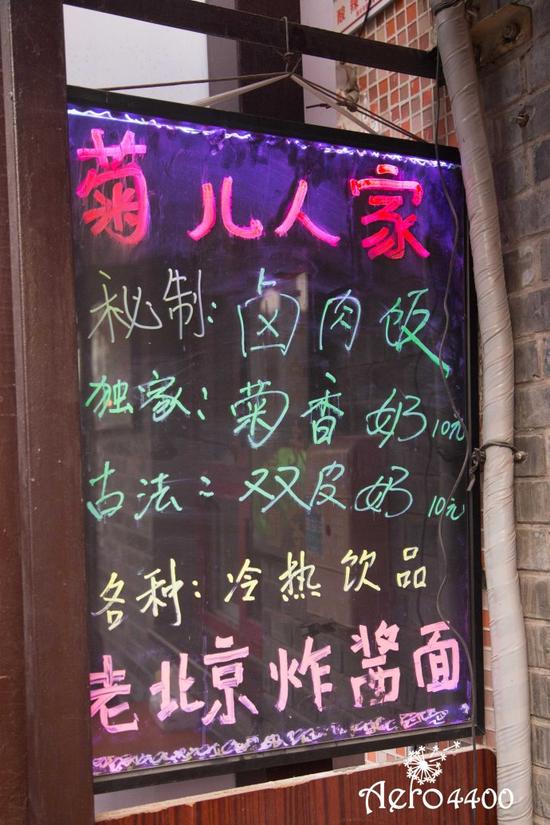 菊儿人家
秘制:卤肉饭
独家:菊香奶10元
古法:双皮奶10元
各种:冷热饮品
老北京炸酱面
Aero4400